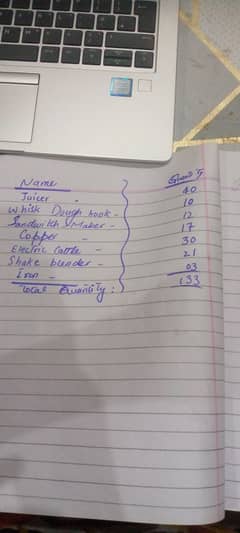 Name Quantity
Juicer - 40
Whisk Dough hook - 10
Sandwitch Maker - 12
Copper - 17
Electric Cattle - 30
Shake blender - 21
Iron - 03
Total Quantity: 133